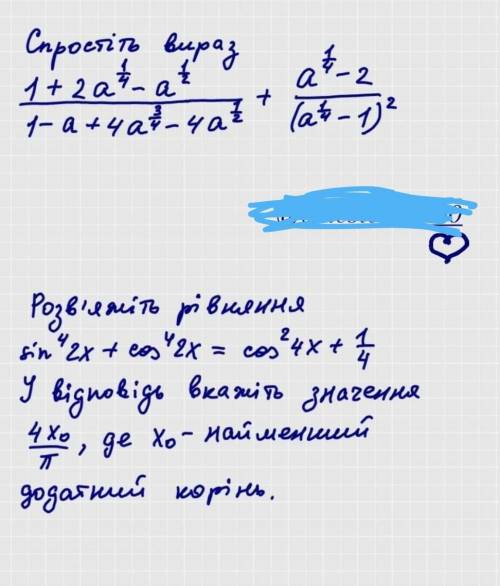 Спростіть вираз
(1 + 2a^(1/4) - a^(1/2)) / (1 - a + 4a^(3/4) - 4a^(1/2)) + (a^(1/4) - 2) / (a^(1/4) - 1)^2
Розв'яжіть рівняння
sin^4 2x + cos^4 2x = cos^2 4x + 1/4
У відповідь вкажіть значення
4x₀/π, де x₀ - найменший
додатний корінь.